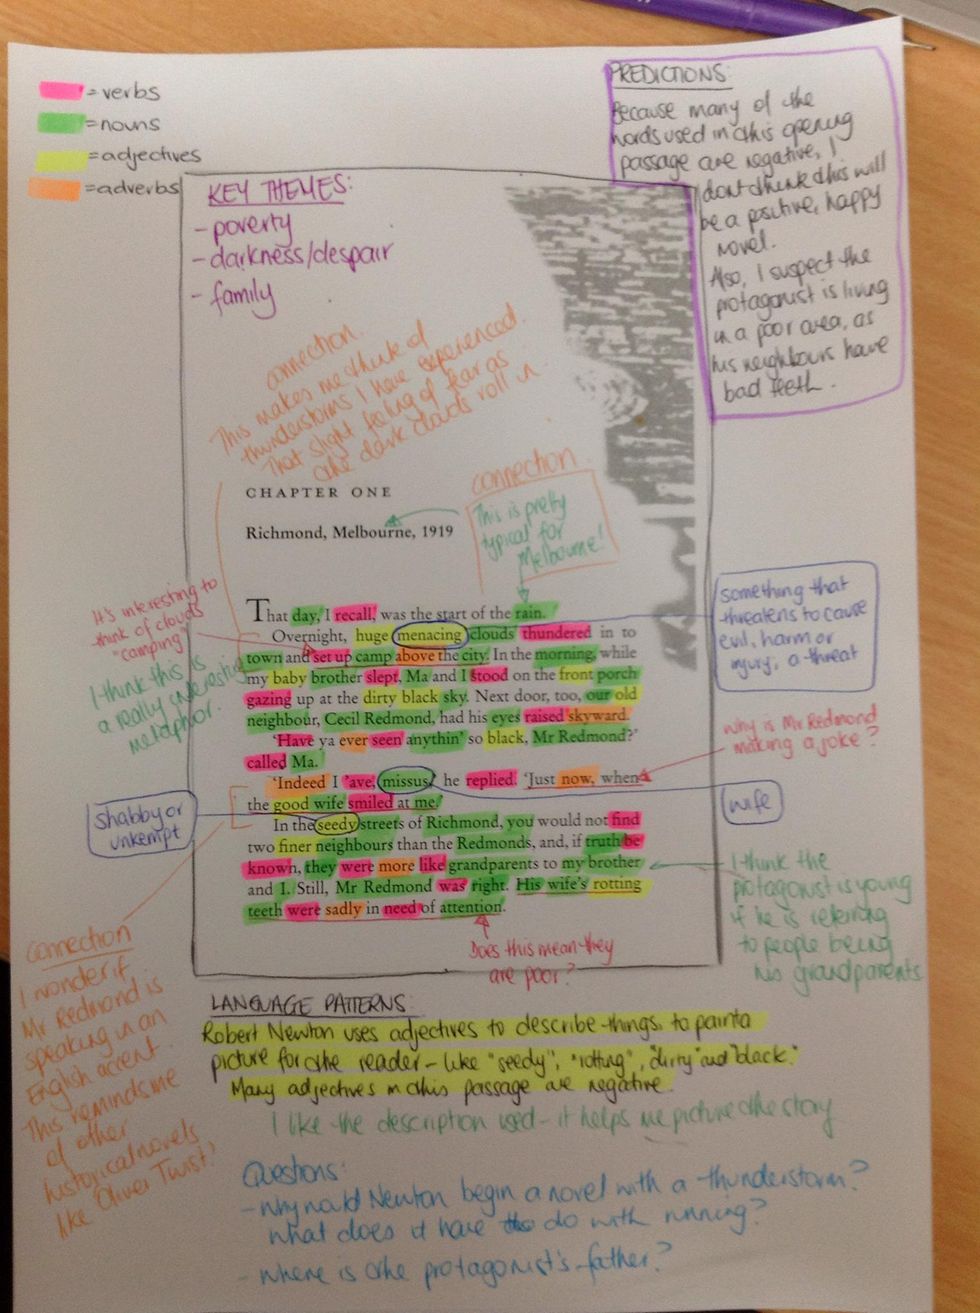 = verbs
= nouns
= adjectives
= adverbs
PREDICTIONS:
Because many of the
words used in this opening
passage are negative, I
dont think this will
be a positive, happy
novel.
Also, I suspect the
protagonist is living
in a poor area, as
his neighbours have
bad teeth.
KEY THEMES:
- poverty
- darkness/despair
- family
connection.
This makes me think of
thunderstorms I have experienced.
That slight feeling of fear as
the dark clouds roll in
CHAPTER ONE
Richmond, Melbourne, 1919
connection
This is pretty
typical for
Melbourne!
That day, I recall, was the start of the rain.
Overnight, huge menacing clouds thundered in to
town and set up camp above the city. In the morning, while
my baby brother slept, Ma and I stood on the front porch
gazing up at the dirty black sky. Next door, too, our old
neighbour, Cecil Redmond, had his eyes raised skyward.
'Have ya ever seen anythin' so black, Mr Redmond?'
called Ma.
'Indeed I 'ave, missus,' he replied. 'Just now, when
the good wife smiled at me.'
In the seedy streets of Richmond, you would not find
two finer neighbours than the Redmonds, and, if truth be
known, they were more like grandparents to my brother
and I. Still, Mr Redmond was right. His wife's rotting
teeth were sadly in need of attention.
It's interesting to
think of clouds
"camping"
I think this is
a really interesting
metaphor.
something that
threatens to cause
evil, harm or
injury, a threat
Why is Mr Redmond
making a joke?
wife
shabby or
unkempt
I think the
protagonist is young
if he is referring
to people being
his grandparents
Does this mean they
are poor?
Connection
I wonder if
Mr Redmond is
speaking in an
English accent.
This reminds me
of other
historical novels
like Oliver Twist!
LANGUAGE PATTERNS:
Robert Newton uses adjectives to describe things, to paint a
picture for the reader - like "seedy", "rotting", "dirty" and "black."
Many adjectives in this passage are negative.
I like the description used - it helps me picture the story
Questions:
- Why would Newton begin a novel with a thunderstorm?
What does it have to do with running?
- Where is the protagonist's father?